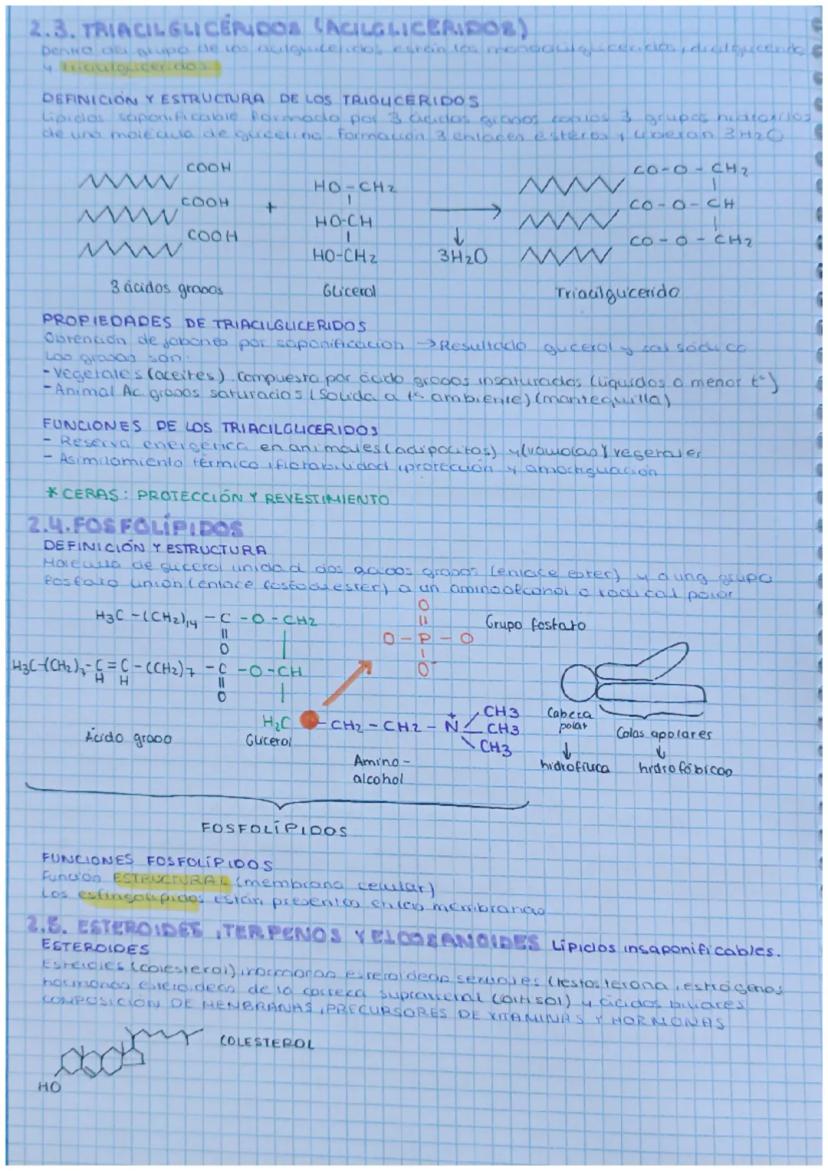 2.3. TRIACILGLICÉRIDOS (ACILGLICERIDOS)
Dentro del grupo de los acilgliceridos están los monoacilgliceridos, diacilgliceridos
y triacilgliceridos.
DEFINICIÓN Y ESTRUCTURA DE LOS TRIGLICERIDOS
Lipidos saponificable formado por 3 ácidos grasos 3 grupos hidroxilos
de una molécula de glicerina. Formación 3 enlaces ésteres y liberan 3H2O
COOH
COOH
COOH
+
HO-CH2
HO-CH
HO-CH2
3H2O
CO-O-CH2
CO-O-CH
CO-O-CH2
3 ácidos grasos
Glicerol
Triacilglicerido
PROPIEDADES DE TRIACILGLICERIDOS
Obtención de jabones por saponificacion → Resultado glicerol y sal sódica
Las grasas son:
-Vegetales (aceites). Compuesta por ácido grasos insaturados (liquidos a menor tª)
-Animal Ac grasos saturados (Solida a tª ambiente) (mantequilla)
FUNCIONES DE LOS TRIACILGLICERIDOS
- Reserva energética en animales (adipocitos) y (vacuolas) vegetales
- Asimilamiento térmico, flotabilidad, protección y amortiguación
* CERAS: PROTECCIÓN Y REVESTIMIENTO
2.4. FOSFOLÍPIDOS
DEFINICIÓN Y ESTRUCTURA
Molécula de glicerol unida a dos ácidos grasos (enlace ester) y a un grupo
fosfato unión (enlace fosfodiester) a un aminoalcohol o radical polar
H3C-(CH2)14-C-O-CH2
O
H3C-(CH2)7-C=C-(CH2)7-C-O-CH
H H
O
H2C
-CH2-CH2-N+
CH3
CH3
CH3
O
O-P-O
O-
Grupo fosfato
Ácido graso
Glicerol
Amino-
alcohol
Cabeza
polar
↓
hidrofílica
Colas apolares
↓
hidrofóbicas
FOSFOLÍPIDOS
FUNCIONES FOSFOLÍPIDOS
Función ESTRUCTURAL (membrana celular)
Los esfingolipidos están presentes en las membranas
2.5. ESTEROIDES, TERPENOS Y EICOSANOIDES Lípidos insaponificables.
ESTEROIDES
Esteroles (colesterol), hormonas esteroideas sexuales (testosterona, estrógenos
hormonas esteroideas de la corteza suprarrenal (cortisol) y ácidos biliares
COMPOSICIÓN DE MENBRANAS, PRECURSORES DE VITAMINAS Y HORMONAS
COLESTEROL
HO